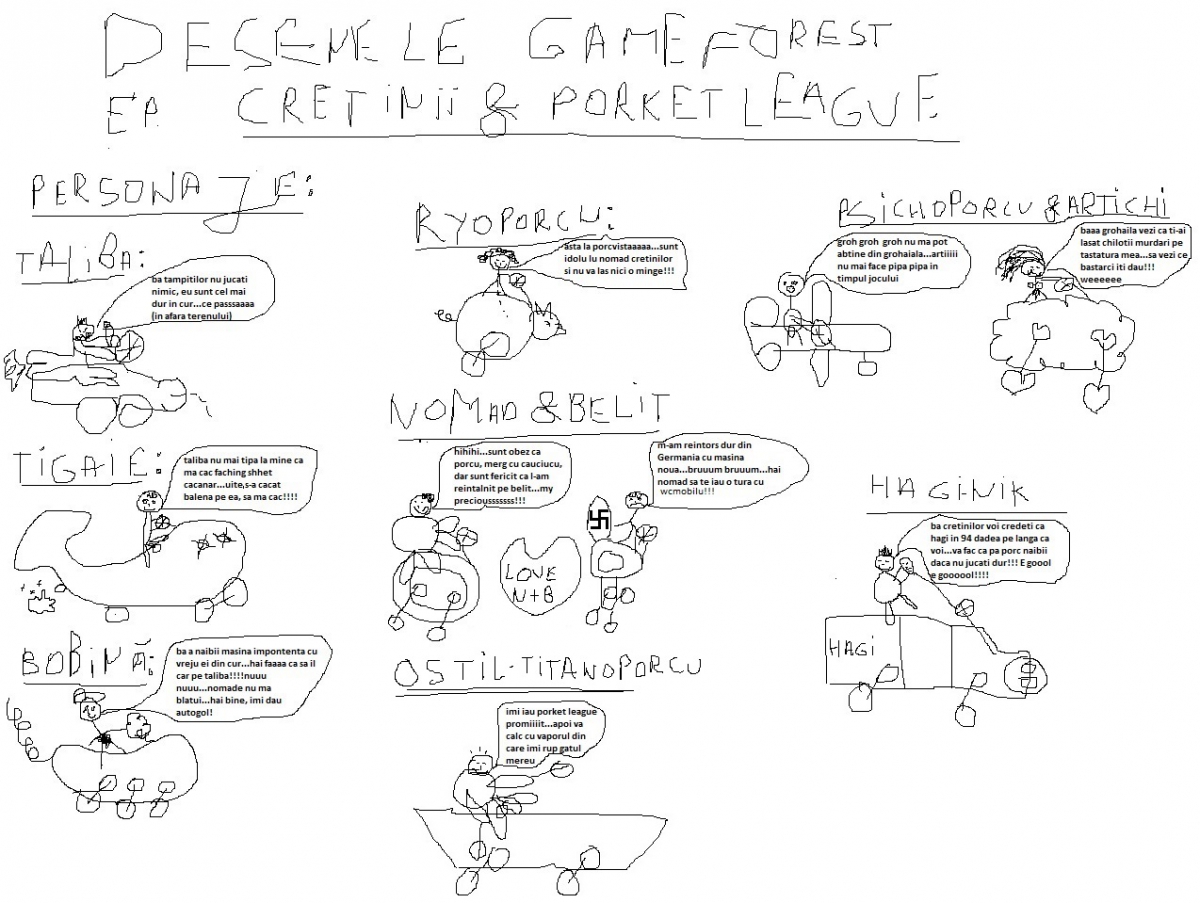 DESENELE GAMEFOREST
EP. CRETINII & PORKET LEAGUE
PERSONAJE:
TALIBA:
ba tampitilor nu jucati
nimic, eu sunt cel mai
dur in cur...ce passsaaaa
(in afara terenului)
TIGAIE:
taliba nu mai tipa la mine ca
ma cac faching shhet
cacanar...uite,s-a cacat
balena pe ea, sa ma cac!!!!
BOBINĂ:
ba a naibii masina impontenta cu
vreju ei din cur...hai faaaa ca sa il
car pe taliba!!!!nuuu
nuuu...nomade nu ma
blatui...hai bine, imi dau
autogol!
RYOPORCU:
asta la porcvistaaaaa...sunt
idolu lu nomad cretinilor
si nu va las nici o minge!!!
NOMAD & BELIT
hihihi...sunt obez ca
porcu, merg cu cauciucu,
dar sunt fericit ca l-am
reintalnit pe belit...my
precioussssssss!!!
m-am reintors dur din
Germania cu masina
noua...bruuum bruuum...hai
nomad sa te iau o tura cu
wcmobilu!!!
LOVE
N+B
OSTIL-TITANOPORCU
imi iau porket league
promiiiit...apoi va
calc cu vaporul din
care imi rup gatul
mereu
PSICHOPORCU & ARTICHI
groh groh groh nu ma pot
abtine din grohaiala...artiiiii
nu mai face pipa pipa in
timpul jocului
baaa grohaila vezi ca ti-ai
lasat chilotii murdari pe
tastatura mea...sa vezi ce
bastarci iti dau!!!
weeeeee
HAGINIK
ba cretinilor voi credeti ca
hagi in 94 dadea pe langa ca
voi...va fac ca pa porc naibii
daca nu jucati dur!!! E goool
e goooool!!!!
HAGI